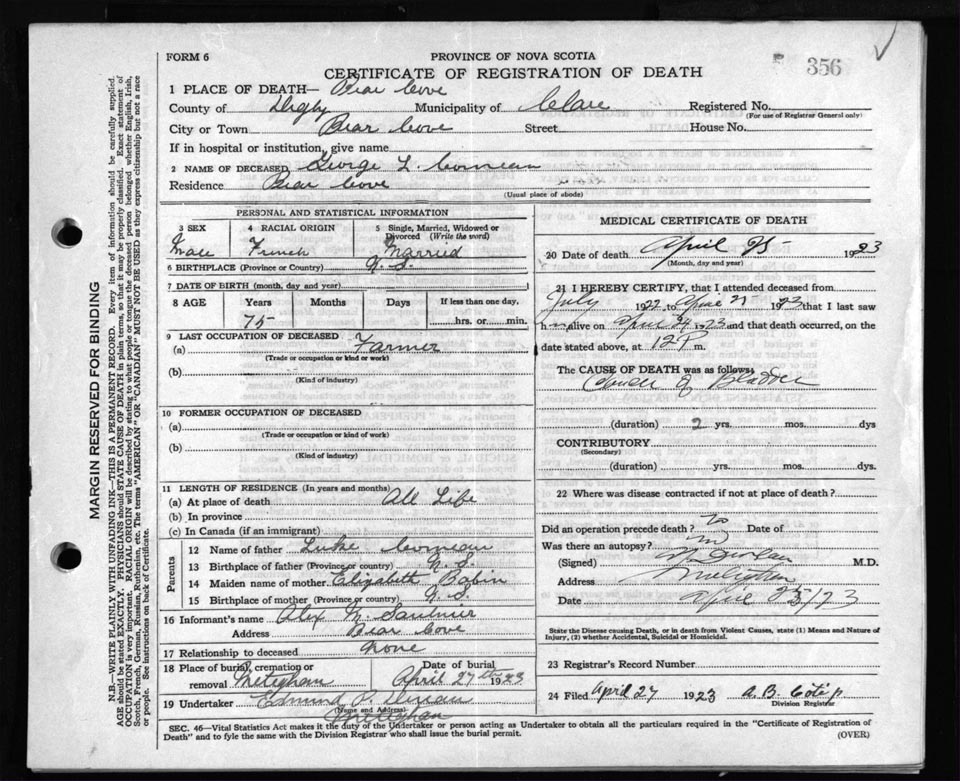 FORM 6
PROVINCE OF NOVA SCOTIA
356
CERTIFICATE OF REGISTRATION OF DEATH
1 PLACE OF DEATH— Bear Cove
County of Digby Municipality of Clare Registered No.
(For use of Registrar General only)
City or Town Bear Cove Street House No.
If in hospital or institution, give name
2 NAME OF DECEASED George L. Comeau
Residence Bear Cove
(Usual place of abode)
PERSONAL AND STATISTICAL INFORMATION
3 SEX 4 RACIAL ORIGIN 5 Single, Married, Widowed or Divorced (Write the word)
Male French Married
6 BIRTHPLACE (Province or Country) N. S.
7 DATE OF BIRTH (month, day and year)
8 AGE Years Months Days If less than one day,
75 hrs. or min.
9 LAST OCCUPATION OF DECEASED
(a) Farmer
(Trade or occupation or kind of work)
(b)
(Kind of industry)
10 FORMER OCCUPATION OF DECEASED
(a)
(Trade or occupation or kind of work)
(b)
(Kind of industry)
11 LENGTH OF RESIDENCE (In years and months)
(a) At place of death All Life
(b) In province
(c) In Canada (if an immigrant)
Parents
12 Name of father Luke Comeau
13 Birthplace of father (Province or country) N. S.
14 Maiden name of mother Elizabeth Babin
15 Birthplace of mother (Province or country) N. S.
16 Informant's name Alex N. Saulnier
Address Bear Cove
17 Relationship to deceased None
18 Place of burial, cremation or removal Meteghan Date of burial April 27th 1923
19 Undertaker Edmund P.
(Name and Address)
Meteghan
MEDICAL CERTIFICATE OF DEATH
20 Date of death April 25 1923
(Month, day and year)
21 I HEREBY CERTIFY, that I attended deceased from
July 1922 to April 1923 that I last saw
h m alive on April 24 1923 and that death occurred, on the
date stated above, at 12 P m.
The CAUSE OF DEATH was as follows:
Cancer of Bladder
(duration) 2 yrs. mos. dys
CONTRIBUTORY
(Secondary)
(duration) yrs. mos. dys.
22 Where was disease contracted if not at place of death?
Did an operation precede death? no Date of
Was there an autopsy? no
(Signed) M.D.
Address Meteghan
Date April 25/23
State the Disease causing Death, or in death from Violent Causes, state (1) Means and Nature of
Injury, (2) whether Accidental, Suicidal or Homicidal.
23 Registrar's Record Number
24 Filed April 27 1923 A. B.
Division Registrar
SEC. 46—Vital Statistics Act makes it the duty of the Undertaker or person acting as Undertaker to obtain all the particulars required in the "Certificate of Registration of
Death" and to fyle the same with the Division Registrar who shall issue the burial permit. (OVER)
MARGIN RESERVED FOR BINDING
N.B.—WRITE PLAINLY WITH UNFADING INK—THIS IS A PERMANENT RECORD. Every item of information should be carefully supplied.
AGE should be stated EXACTLY. PHYSICIANS should STATE CAUSE OF DEATH in plain terms, so that it may be properly classified. Exact statement of
OCCUPATION is very important. RACIAL ORIGIN will be described by stating to what people or tongue the deceased person belonged whether English, Irish,
Scotch, French, German, Russian, Ruthenian, etc. The terms "AMERICAN" OR "CANADIAN" MUST NOT BE USED as they express citizenship but not a race or
people. See instructions on back of Certificate.